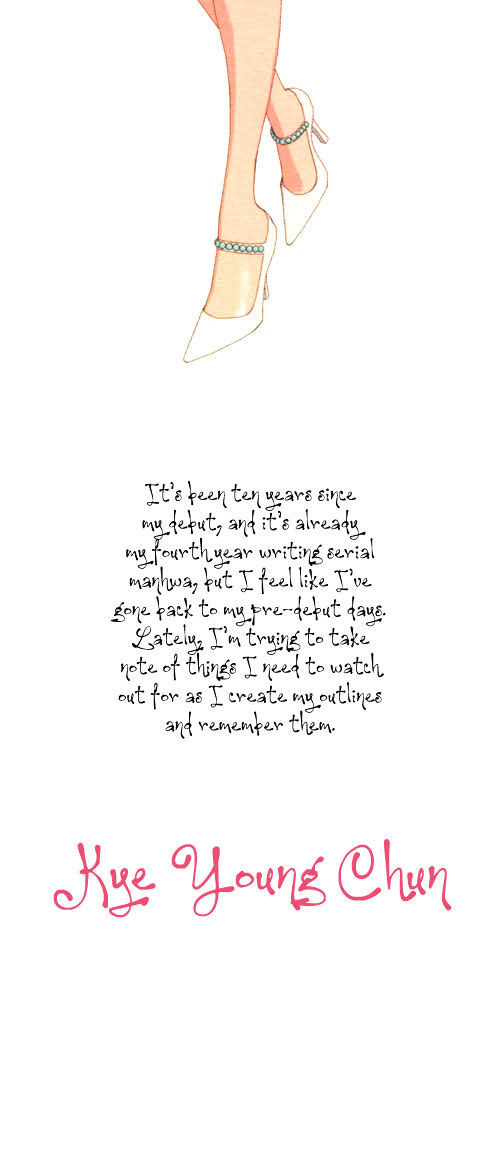 It's been ten years since
my debut, and it's already
my fourth year writing serial
manhwa, but I feel like I've
gone back to my pre-debut days.
Lately, I'm trying to take
note of things I need to watch
out for as I create my outlines
and remember them.
Kye Young Chun